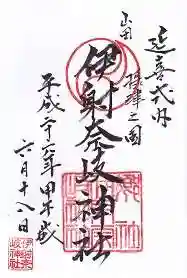 延喜式内
山田
摂津之国
伊射奈岐神社
平成二十六年甲午歳
六月十八日
伊射奈岐神社